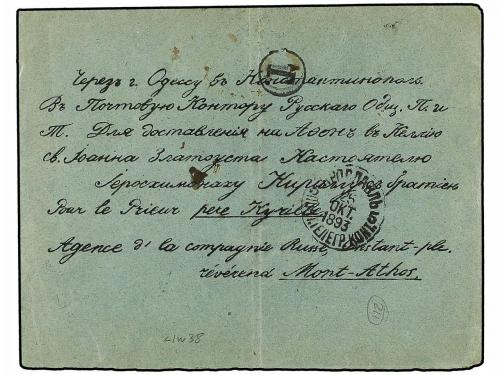 Черезъ г. Одессу въ Константинополь.
Въ Почтовую Контору Русскаго Общ. П. и
Т. Для доставленія на Аѳонъ въ Келлію
св. Іоанна Златоуста Настоятелю
Іеросхимонаху Кириллу съ братіею
Pour le Prieur pere Kyrille
Agence d' la compagnie Russe, Constant-ple.
révérend Mont-Athos.
ОКТ.
1893
ТЕЛЕГР. КОНТ.
211